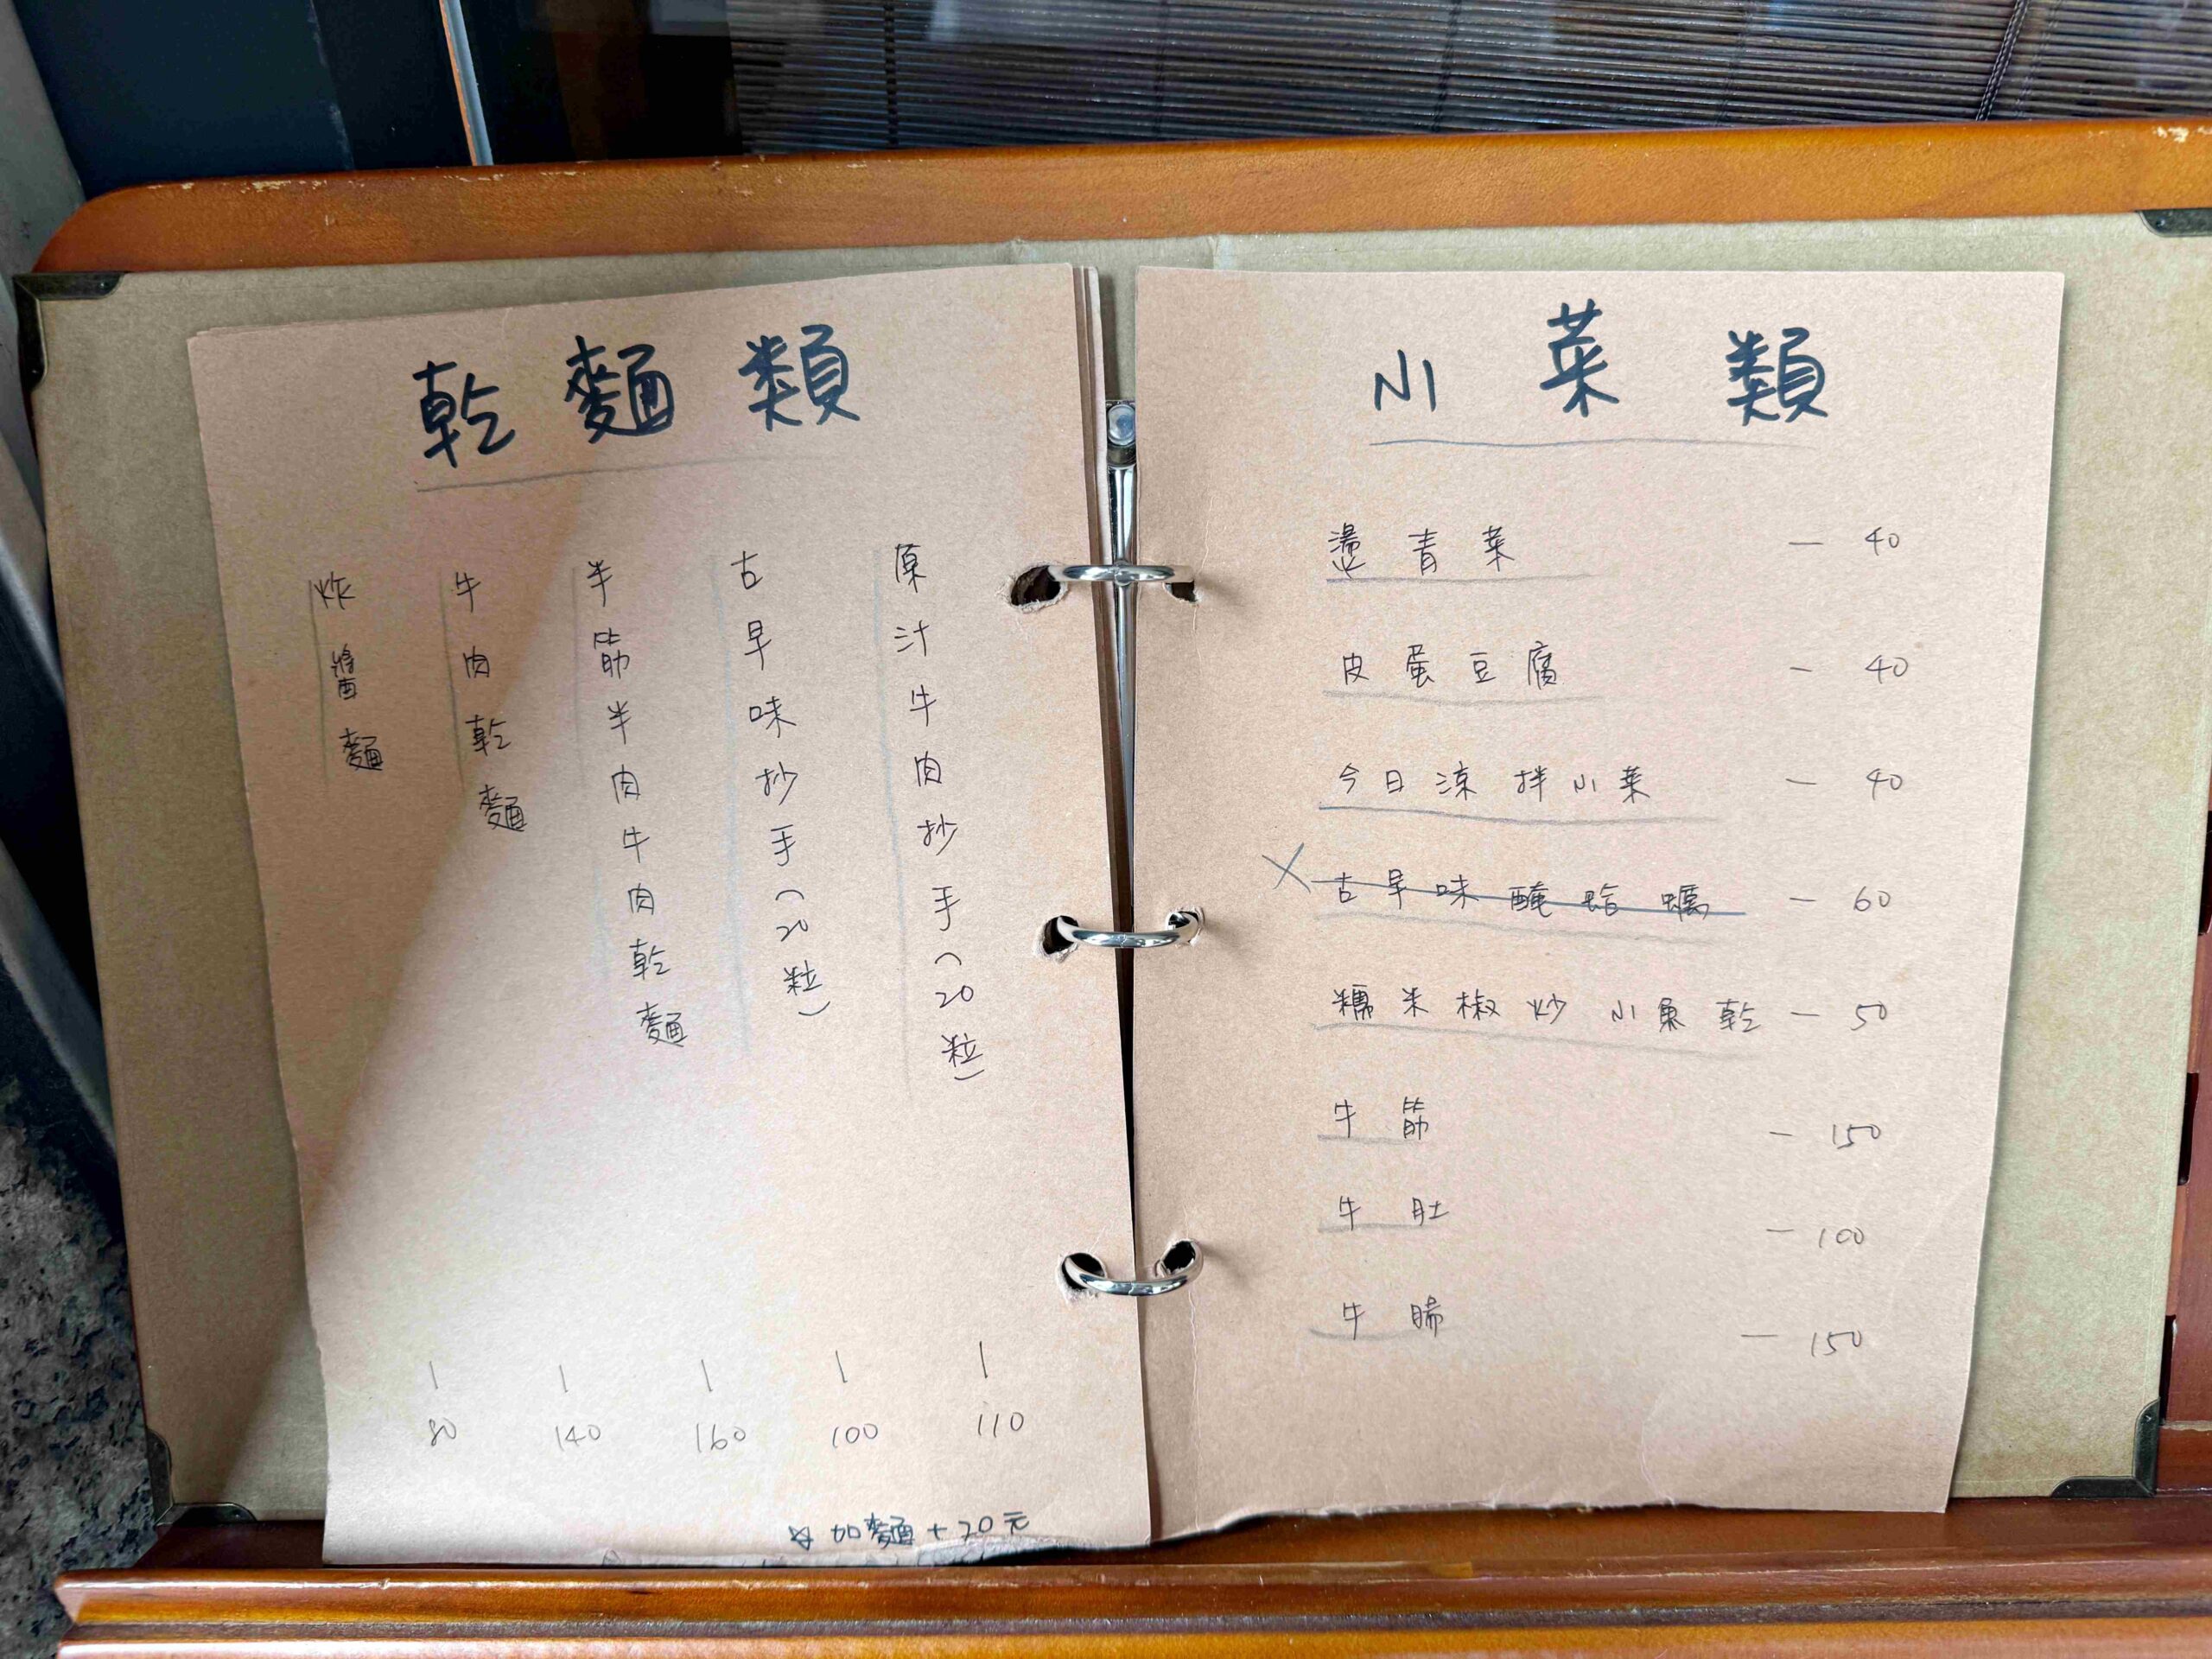 乾麵類
原汁牛肉抄手(20粒)
110
古早味抄手(20粒)
100
半筋半肉牛肉乾麵
160
牛肉乾麵
140
炸醬麵
80
加麵+20元
小菜類
燙青菜 — 40
皮蛋豆腐 — 40
今日涼拌小菜 — 40
古早味醃蛤蠣 — 60
糯米椒炒小魚乾 — 50
牛筋 — 150
牛肚 — 100
牛腸 — 150